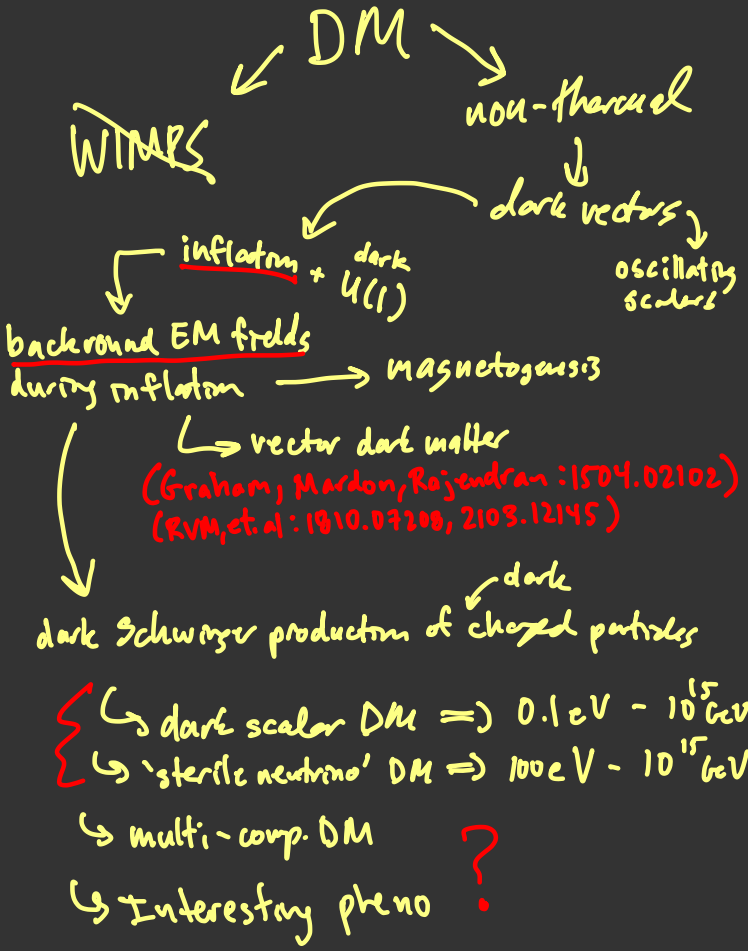 DM
WIMPS
non-thermal
dark vectors
oscillating
scalars
inflation + dark U(1)
backround EM fields
during inflation
magnetogensis
vector dark matter
(Graham, Mardon, Rajendran : 1504.02102)
(RVM, et. al : 1810.07208, 2103.12145)
dark
dark Schwinger production of charged particles
dark scalar DM => 0.1 eV - 10^15 GeV
'sterile neutrino' DM => 100 eV - 10^15 GeV
multi-comp. DM
Interesting pheno ?